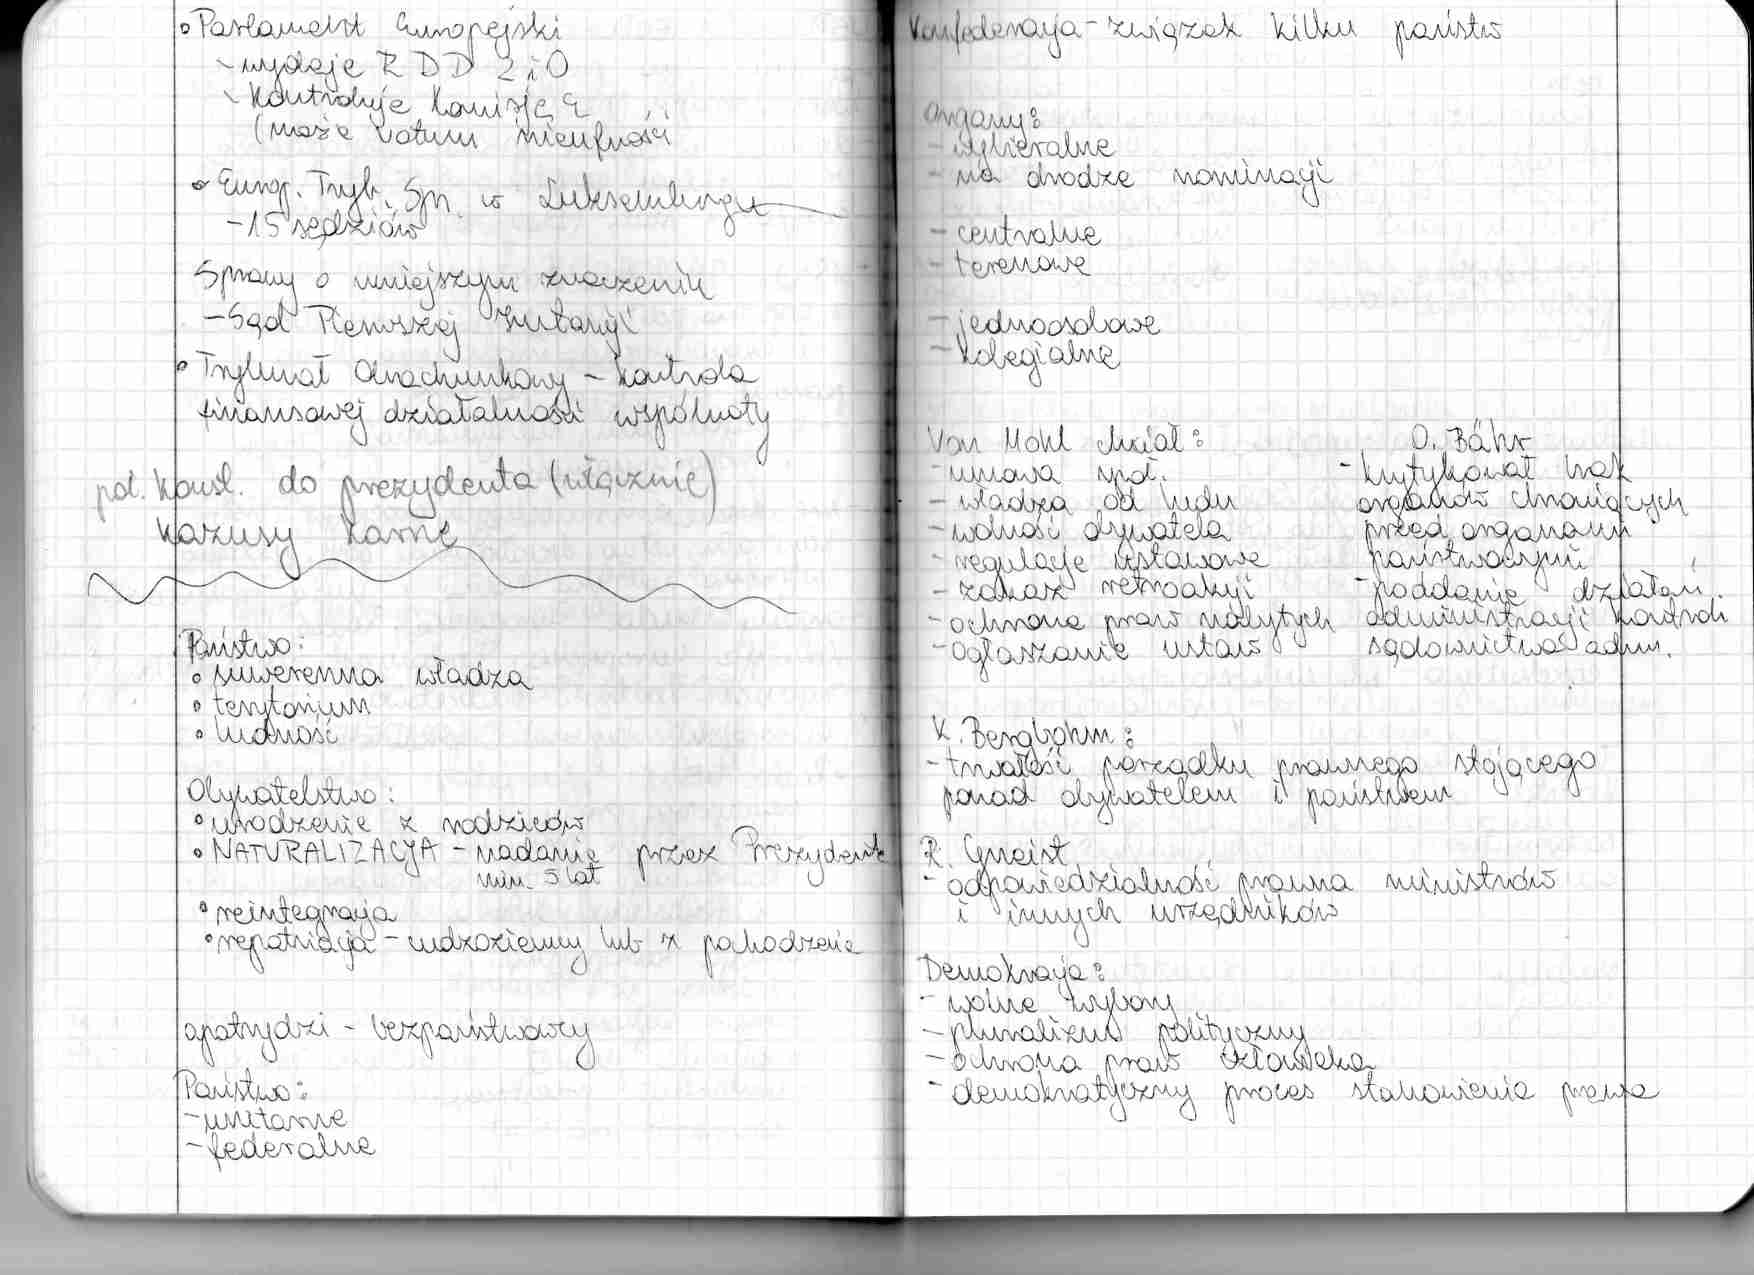 Parlament Europejski
- wydaje R D D Z i O
- kontroluje Komisję E
(może votum nieufności
Europ. Tryb. Spr. w Luksemburgu
- 15 sędziów
Sprawy o mniejszym znaczeniu
- Sąd Pierwszej Instancji
Trybunał Obrachunkowy - kontrola
finansowej działalności wspólnoty
pol. konst. do prezydenta (włącznie)
kazusy karne
Państwo:
suwerenna władza
terytorium
ludność
Obywatelstwo:
urodzenie z rodziców
NATURALIZACJA - nadanie przez Prezydenta
min. 5 lat
reintegracja
repatriacja - cudzoziemcy lub z pochodzenie
apatrydzi - bezpaństwowcy
Państwo:
- unitarne
- federalne
Konfederacja - związek kilku państw
Organy:
- wybieralne
- na drodze nominacji
- centralne
- terenowe
- jednoosobowe
- kolegialne
Von Mohl chciał:
- umowa społ.
- władza od ludu
- wolność obywatela
- regulacje ustawowe
- zakaz retroakcji
- ochrona praw nabytych
- ogłaszanie ustaw
O. Bähr
- krytykował brak
organów chroniących
przed organami
państwowymi
- poddanie działań
administracji kontroli
sądownictwa adm.
K. Bergbohm:
- trwałość porządku prawnego stojącego
ponad obywatelem i państwem
R. Gneist
- odpowiedzialność prawna ministrów
i innych urzędników
Demokracja:
- wolne wybory
- pluralizm polityczny
- ochrona praw człowieka
- demokratyczny proces stanowienia prawa